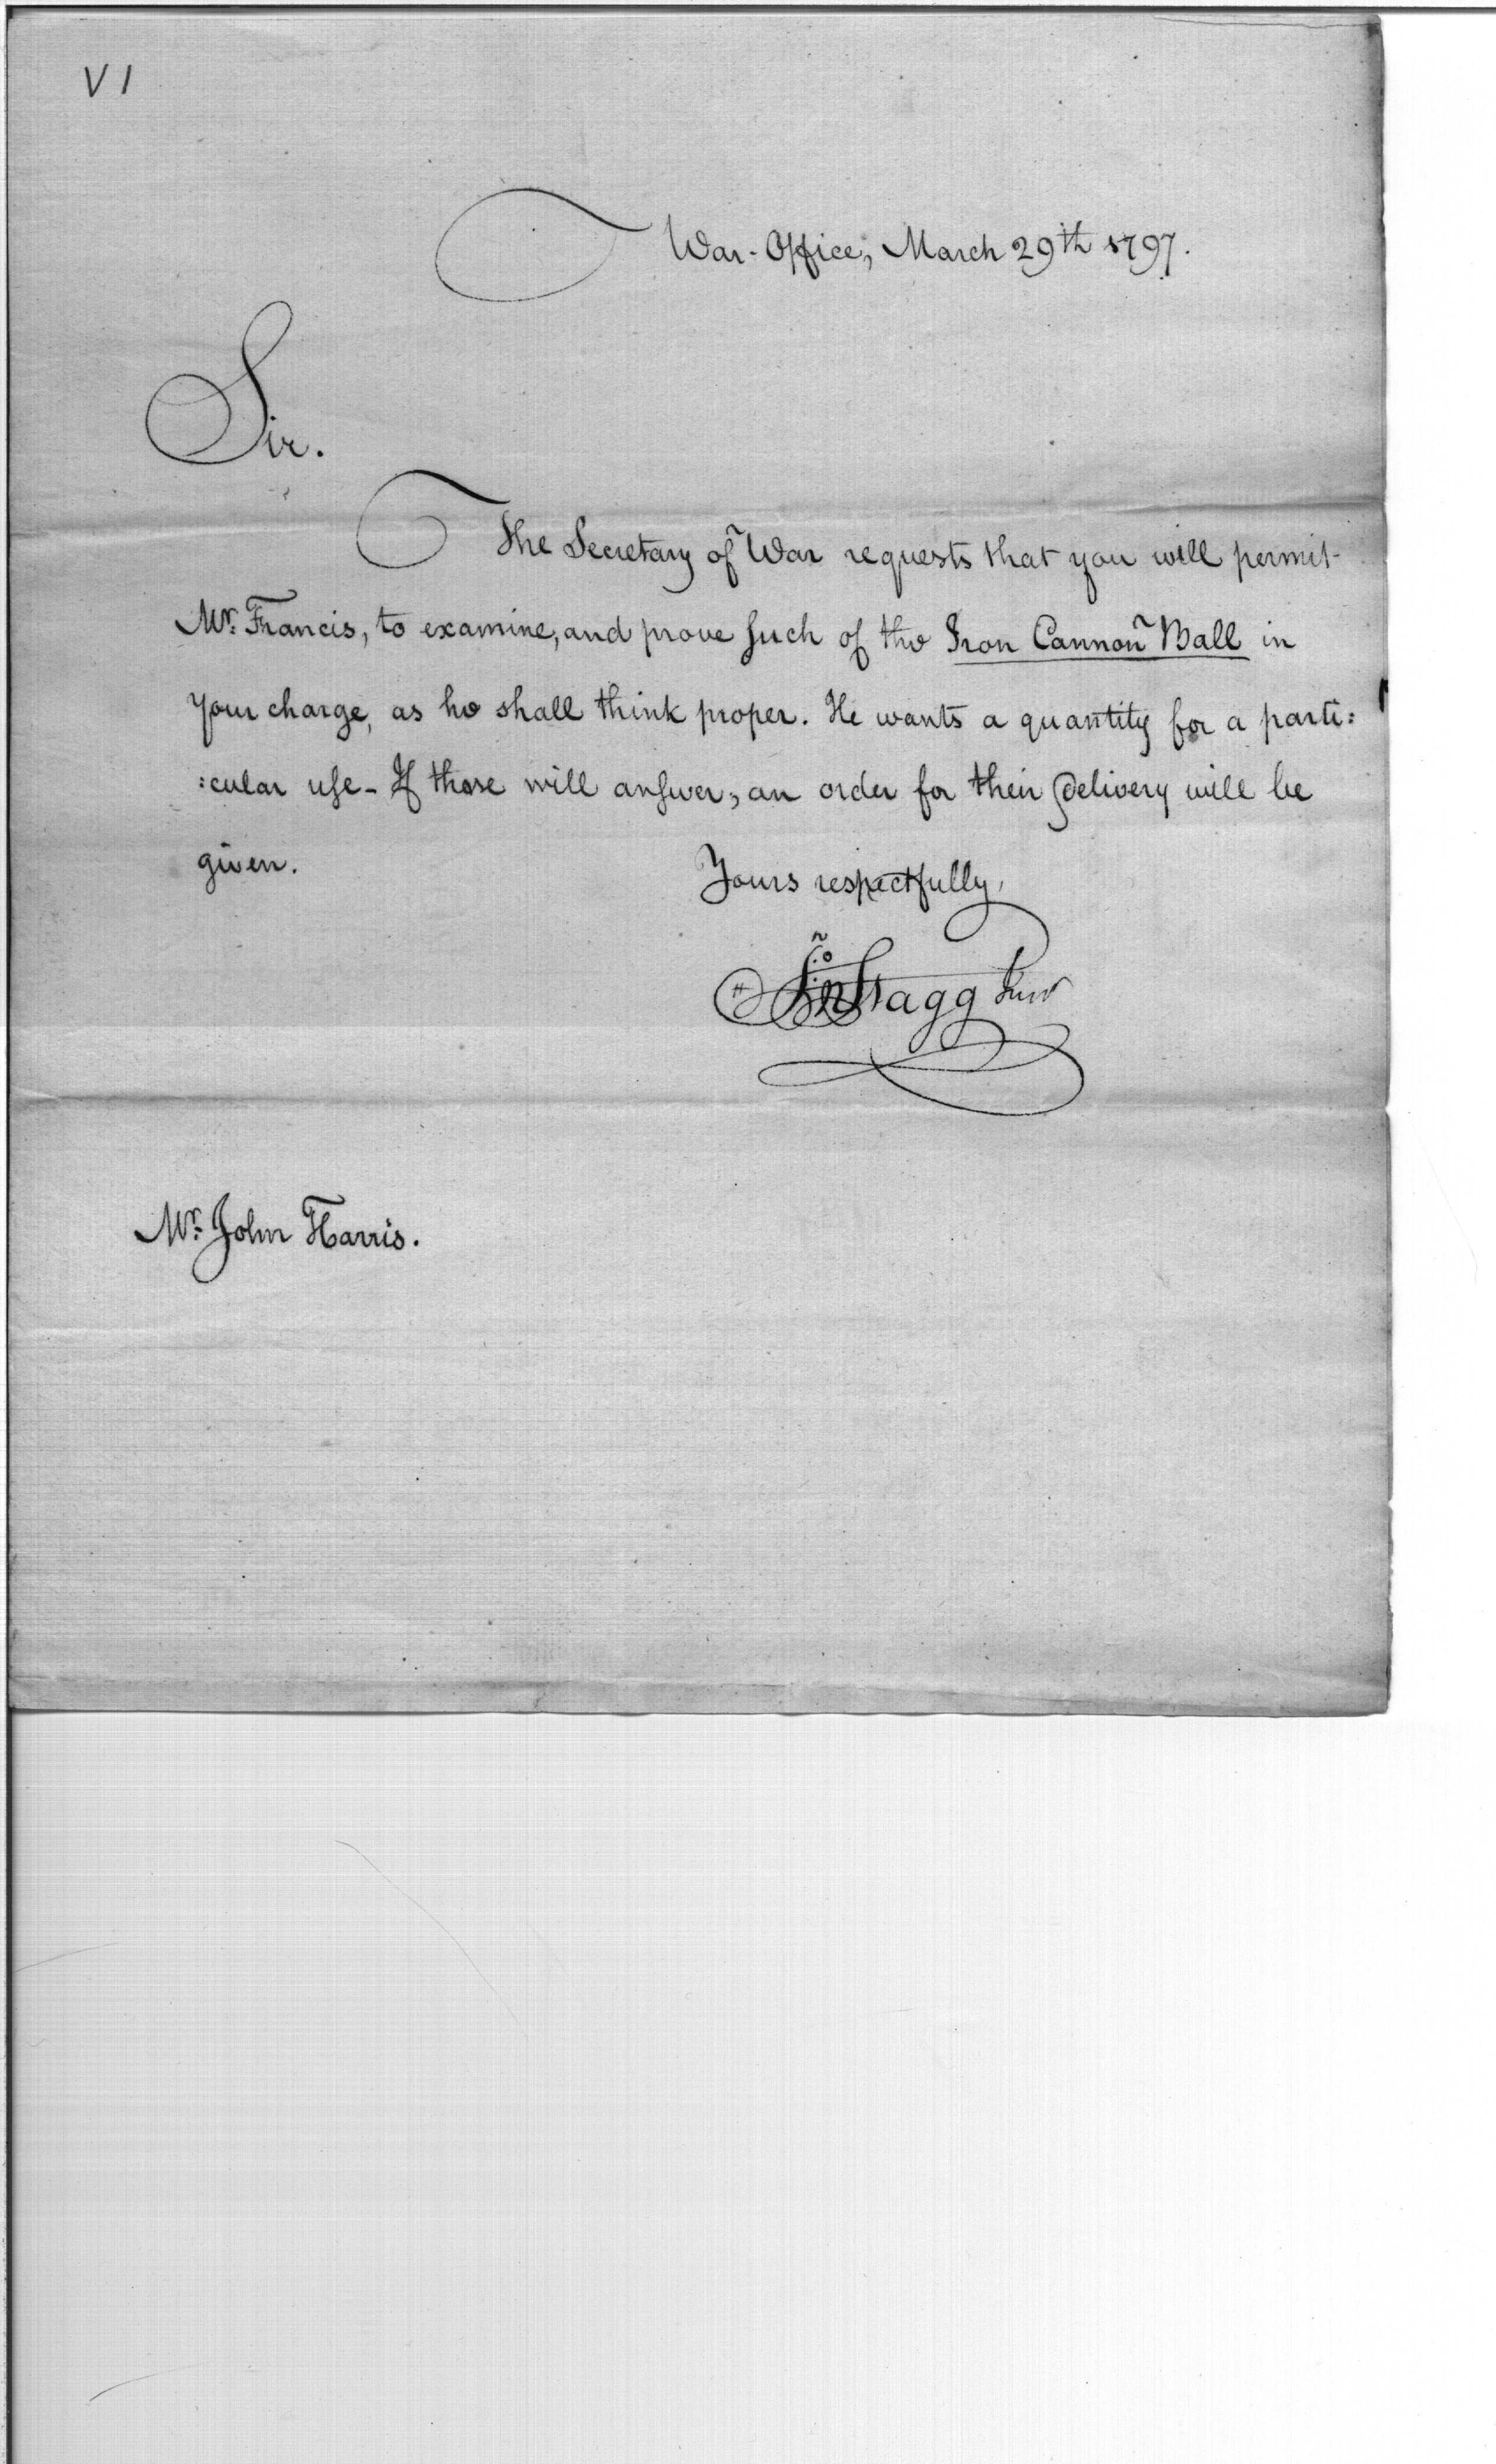 V 1
War-Office, March 29th 1797.
Sir.
The Secretary of War requests that you will permit
Mr. Francis, to examine, and prove such of the Iron Cannon Ball in
your charge, as he shall think proper. He wants a quantity for a parti:
:cular use - If those will answer, an order for their delivery will be
given.
Yours respectfully,
Jno Stagg Junr
Mr. John Harris.